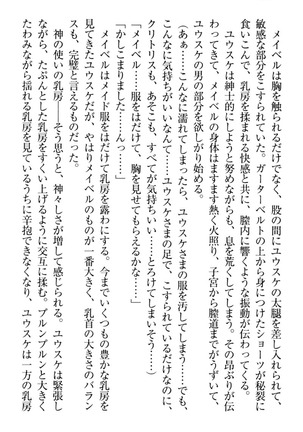 メイベルは胸を触られるだけでなく、股の間にユウスケの太腿を入れられ、
敏感な部分をこすられていた。ガーターベルトの上から身につけたショーツが秘裂に
食いこんで、乳房を揉まれる快感と共に、膣内に響くような振動が伝わってくる。
ユウスケは紳士的にしようと努めながらも、息を荒くしてしまう。その昂ぶりが伝
わってきて、メイベルの身体はますます熱く火照り、子宮から膣道までがうずいて、
ユウスケの男の部分を欲しがり始める。
（あぁ……こんなに濡れてしまったら、ユウスケさまの服を汚してしまう……でも、
こんなに気持ちがいいなんて……ユウスケさまの足で、こすられているだけなのに、
クリトリスも、あそこも、すべてが気持ちいい……とろけてしまいそう……）
「メイベル……服をはだけて、胸を見せてもらえるかな……」
「かしこまりました……んっ……」
メイベルはメイド服をはだけて乳房を露わにする。今までいくつもの豊かな乳房を
見てきたユウスケだが、やはりメイベルのものが一番大きく、乳首の大きさのバラン
スも、完璧と言えるものだった。
神の使いの乳房――そう思うと、神々しさが増して感じられる。ユウスケは緊張し
ながら、たぷんとした乳房をすくい上げるように交互に揉む。ブルンブルンと大きく
たわみながら揺れる乳房を見ているうちに辛抱できなくなり、ユウスケは一方の乳房